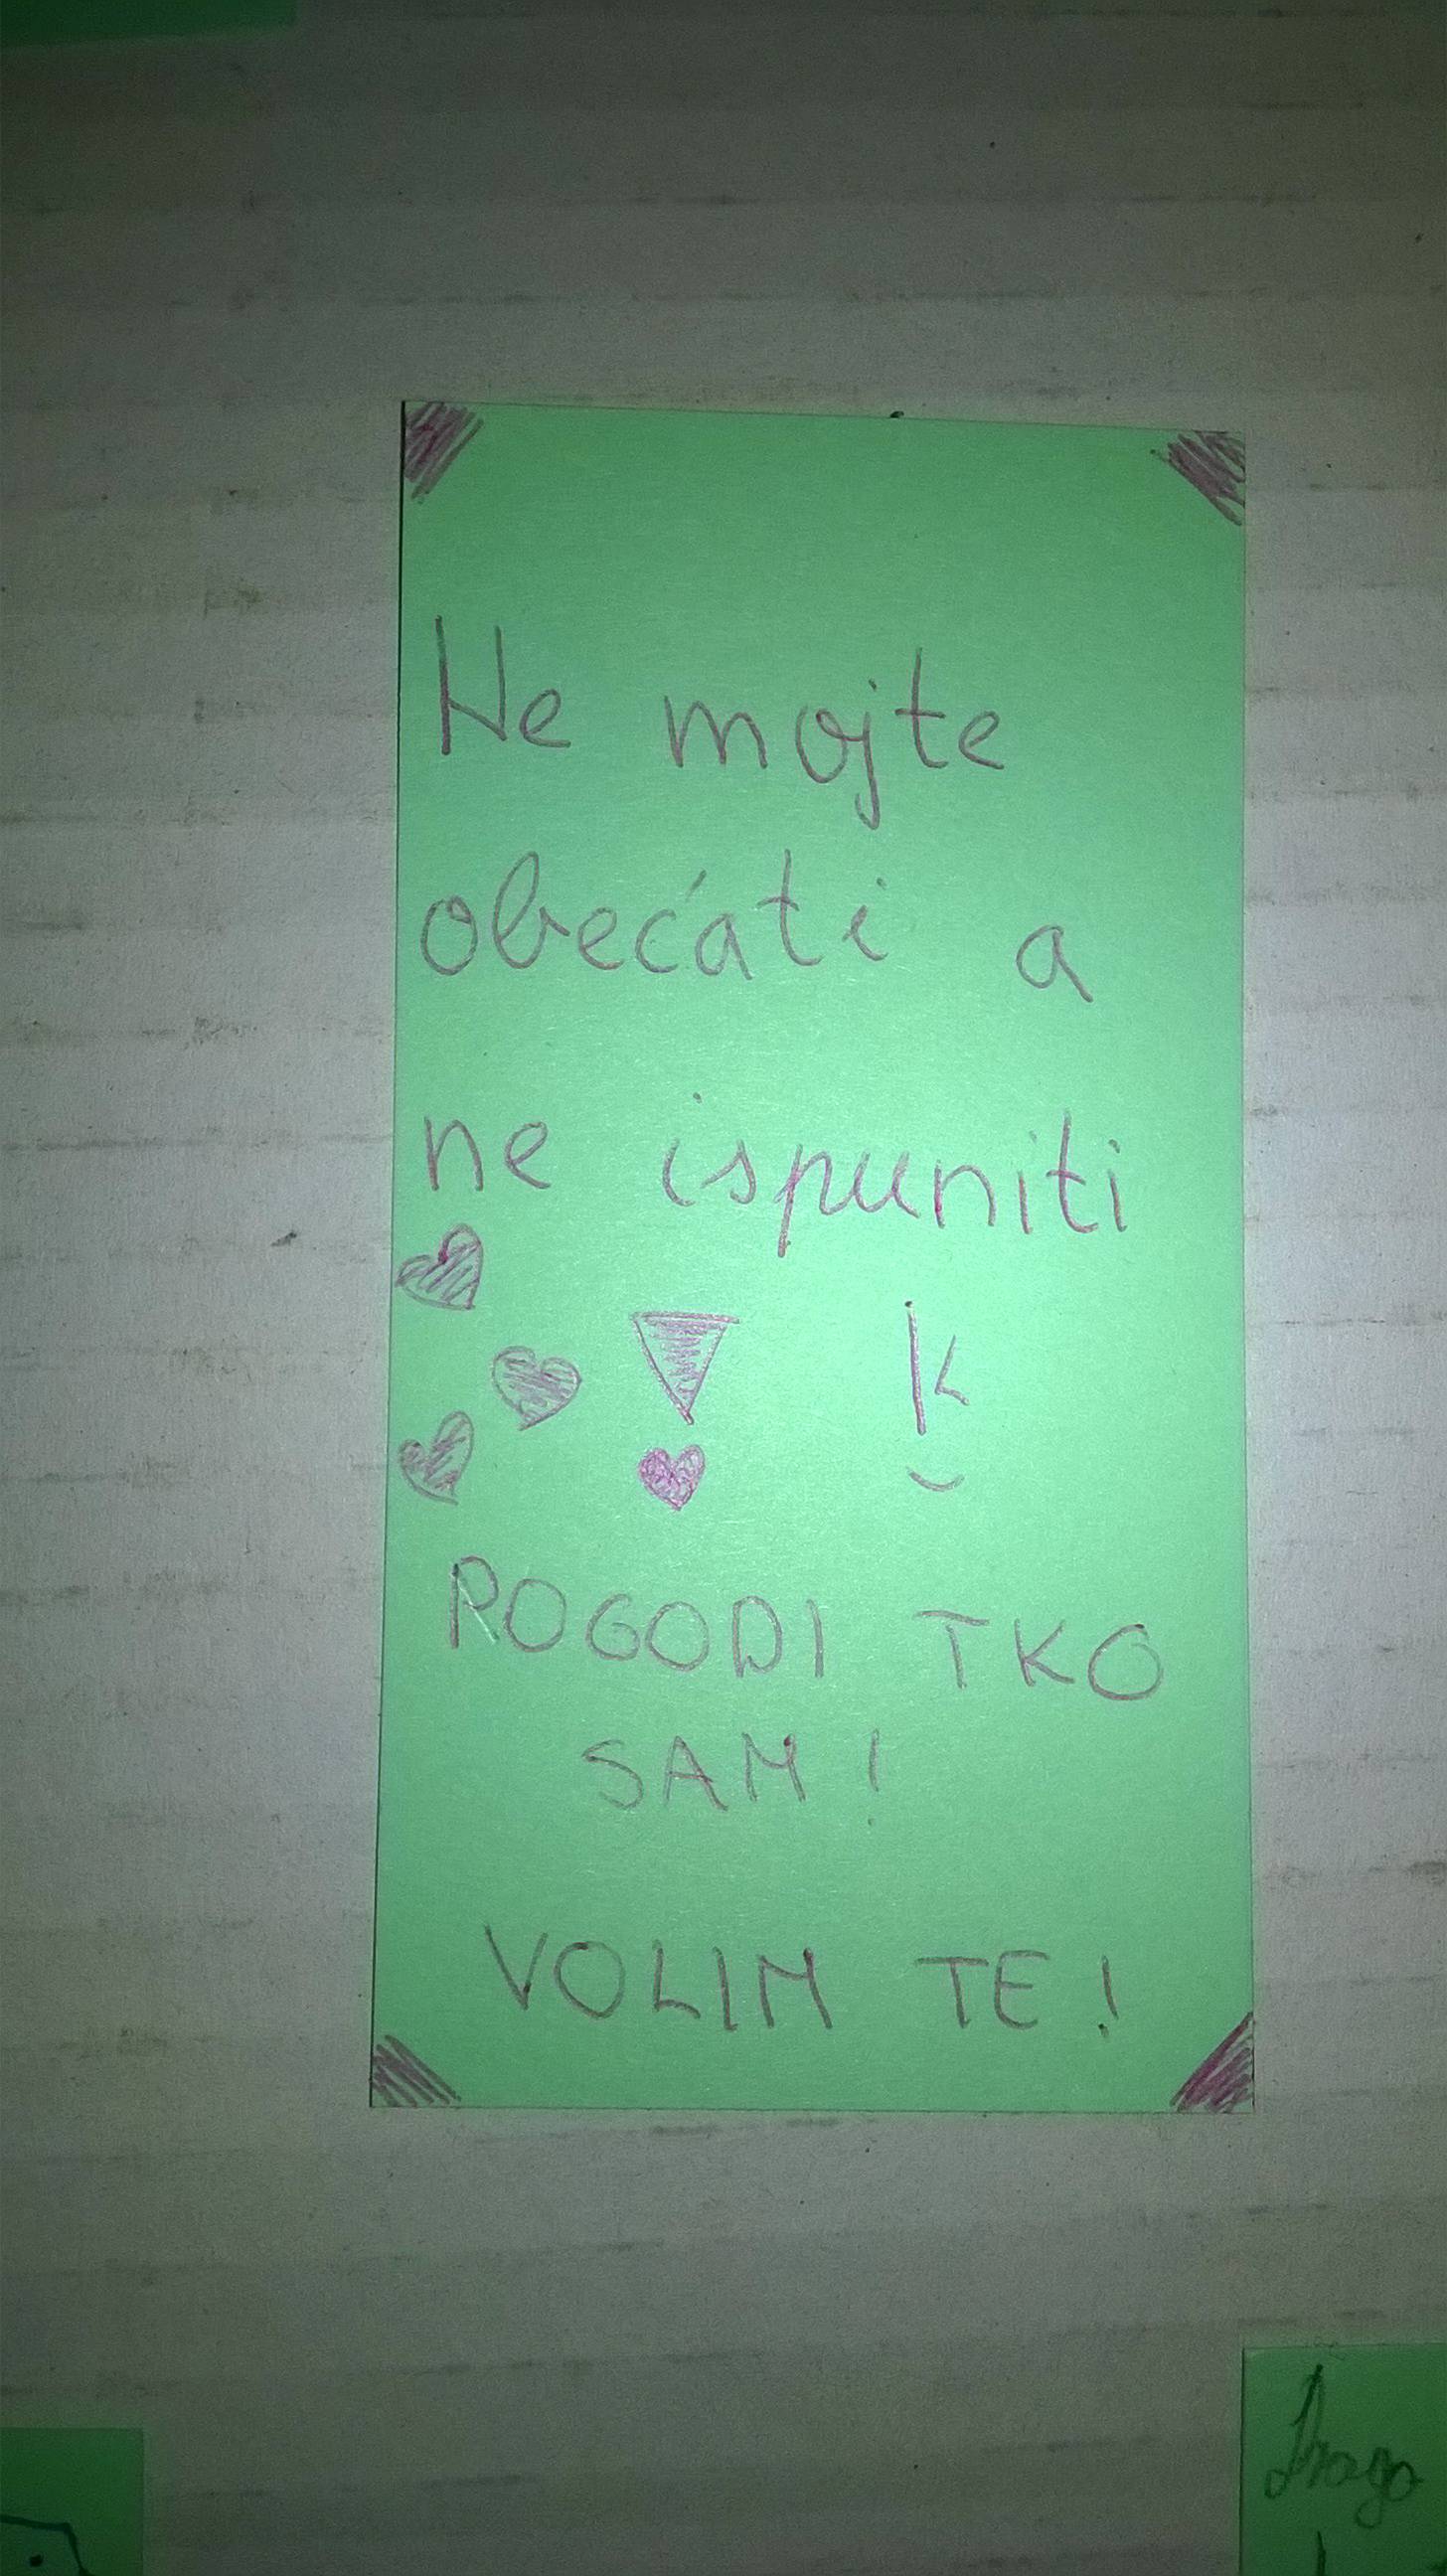 Ne mojte
obećati a
ne ispuniti
k
POGODI TKO
SAM!
VOLIM TE!
Drago